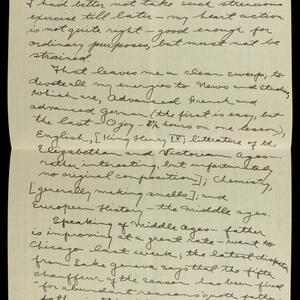 I had better not take such strenuous
exercise till later - my heart action
is not quite right - good enough for
ordinary purposes, but must not be
strained.
That leaves me a clean sweep, to
devote all my energies to News and studies,
which are, Advanced French and
advanced German (the first is easy, but
the last - O joy - 2½ hours on one lesson),
English, [King Henry IV; literature of the
Elizabethan and Victorian Ages -
rather interesting, but unfortunately
no original composition]; Chemistry,
[generally making smells]; and
European History - the middle ages.
Speaking of middle ages - father
is improving at a great rate - went to
Chicago last week; the latest dispatch
from Lake Geneva says that the fifth
chauffeur of the season has been fired
- for abundant reasons quote father